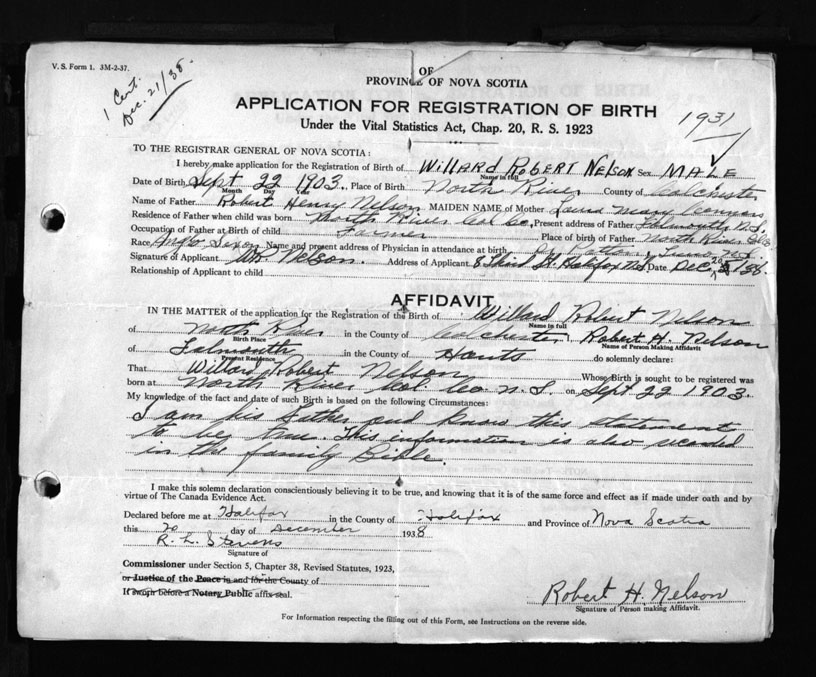 V. S. Form 1. 3M-2-37.
1 Cert.
Dec. 21/38.
OF
PROVINCE OF NOVA SCOTIA
APPLICATION FOR REGISTRATION OF BIRTH
1931
Under the Vital Statistics Act, Chap. 20, R. S. 1923
TO THE REGISTRAR GENERAL OF NOVA SCOTIA:
I hereby make application for the Registration of Birth of WILLARD ROBERT NELSON Sex MALE
Name in full
Date of Birth Sept 22 1903. Place of Birth North River County of Colchester
Month Day Year
Name of Father Robert Henry Nelson MAIDEN NAME of Mother Laura Mary
Residence of Father when child was born North River Col Co. Present address of Father Falmouth N.S.
Occupation of Father at Birth of child Farmer Place of birth of Father North River
Race Anglo Saxon Name and present address of Physician in attendance at birth Dr. Truro N.S.
Signature of Applicant W.R. Nelson. Address of Applicant 8 Halifax N.S. Date Dec. 38.
Relationship of Applicant to child
AFFIDAVIT
IN THE MATTER of the application for the Registration of the Birth of Willard Robert Nelson
Name in full
of North River in the County of Colchester Robert H. Nelson
Birth Place Name of Person Making Affidavit
of Falmouth in the County of Hants do solemnly declare:
Present Residence
That Willard Robert Nelson Whose Birth is sought to be registered was
born at North River Col Co. N.S. on Sept 22 1903.
My knowledge of the fact and date of such Birth is based on the following Circumstances:
I am his Father and know this statement
to be true. This information is also recorded
in the family Bible.
I make this solemn declaration conscientiously believing it to be true, and knowing that it is of the same force and effect as if made under oath and by
virtue of The Canada Evidence Act.
Declared before me at Halifax in the County of Halifax and Province of Nova Scotia
this 20 day of December 1938
R. L. Stevens
Signature of
Commissioner under Section 5, Chapter 38, Revised Statutes, 1923,
or Justice of the Peace in and for the County of
If sworn before a Notary Public affix seal.
Robert H. Nelson
Signature of Person making Affidavit.
For Information respecting the filling out of this Form, see Instructions on the reverse side.